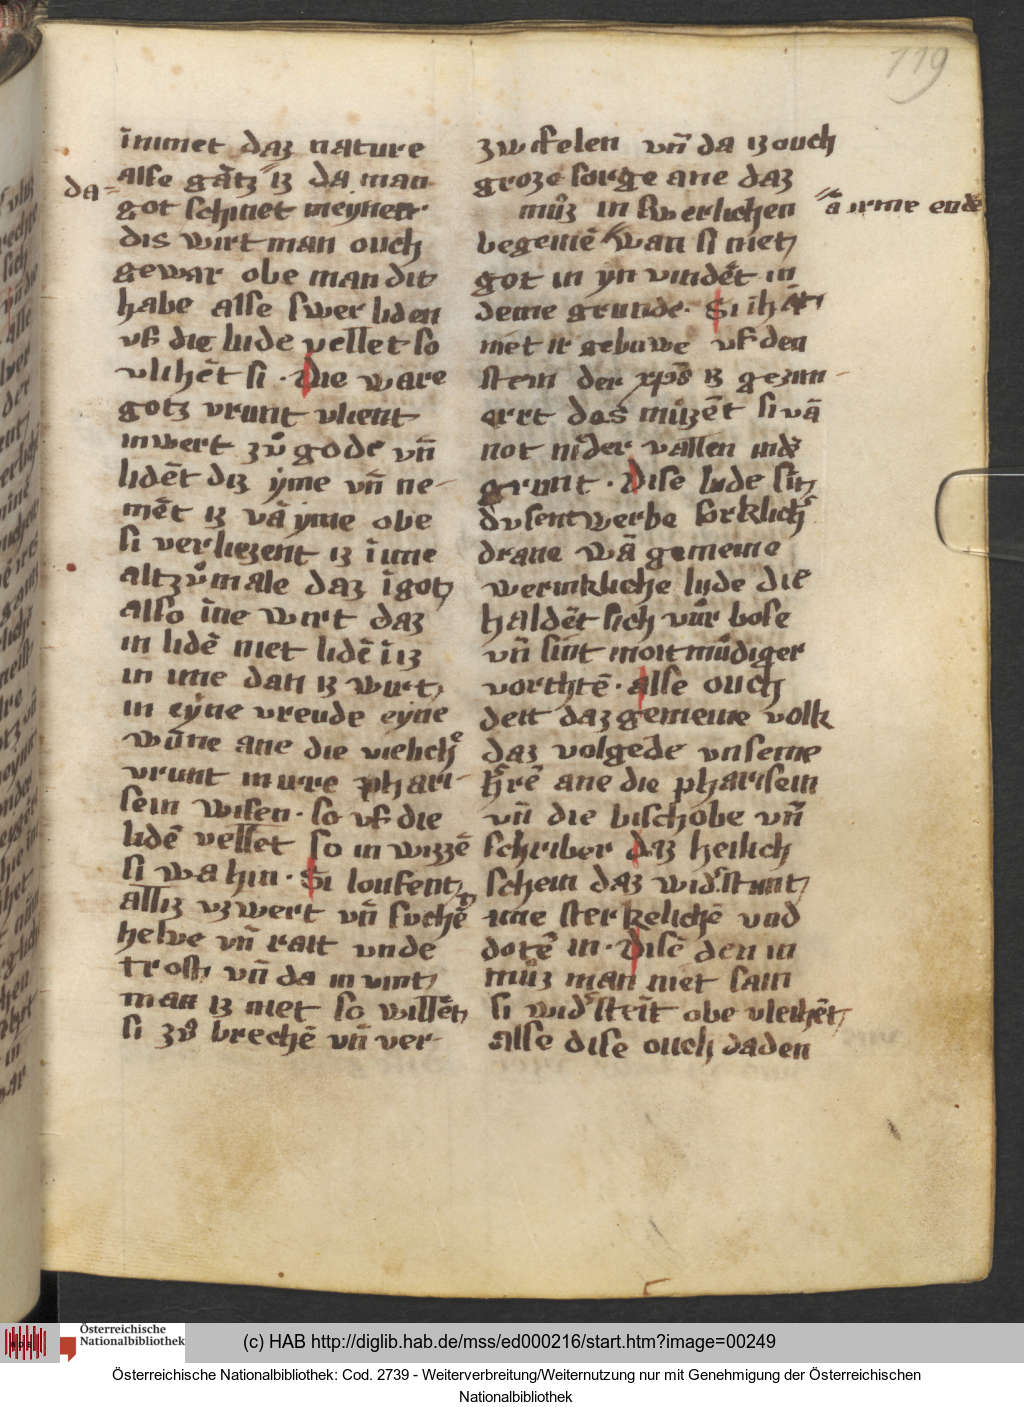 119
immet daz nature
alse gātz iz da man
da=
got schinet meynet·
dis wirt man ouch
gewar obe man dit
habe alse swer liden
vf die lude vellet so
vlihēt si · Die ware
gotz vrunt vlient
inwert zuͦ gode vn̄
lidēt diz yme vn̄ ne-
mēt iz vā yme obe
si verliezent iz ī ime
altzuͦmale daz ī got
also īne wirt daz
in lidē niet lidē ī iz
in ime dan iz wirt
in eyne vreude eyne
wūne ane die
vrunt in ure phari-
sein wisen · so vf die
lidē vellet so in wizzē
si wa hin · Si loufent
alliz vzwert vn̄ suchē
helve vn̄ rait vnde
trost vn̄ da in vint
man iz niet so willēt
si zuͦ brechē vn̄ ver-
zwifelen vn̄ da iz ouch
groze sorge ane daz
muͦz in swerlichen
ā irme endē
begeinē wan si niet
got in yn vindēt in
deme grunde · Si īhāt
niet ir gebuwe vf den
stein der xp̄s iz gezim-
ert des muͦzēt si vā
not nider vallen inds
grunt · Dise lude sīt
dusentwerbe sorklich
drane wā gemeine
werinkliche lude die
haldēt sich vuͦr bose
vn̄ sint moitmuͦdiger
vorthtē · alse ouch
deit daz gemeine volk
daz volgede vnseme
h̄rē ane die pharisein
vn̄ die bischobe vn̄
schriber daz heilich
schein daz wid͛stunt
ime sterkelichē vnd
dotē in · Disē den in
muͦz man niet sam
si wid͛steīt obe vleihēt
alse dise ouch daden
Österreichische
Nationalbibliothek
(c) HAB http://diglib.hab.de/mss/ed000216/start.htm?image=00249
Österreichische Nationalbibliothek: Cod. 2739 - Weiterverbreitung/Weiternutzung nur mit Genehmigung der Österreichischen
Nationalbibliothek